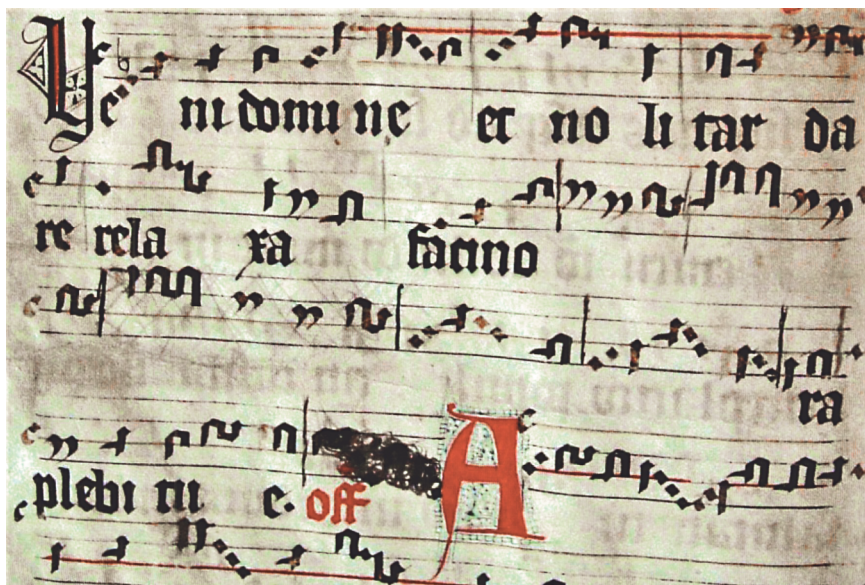 Ve ni domi ne et no li tar da
re rela xa facino
ra
plebi tu e. off A